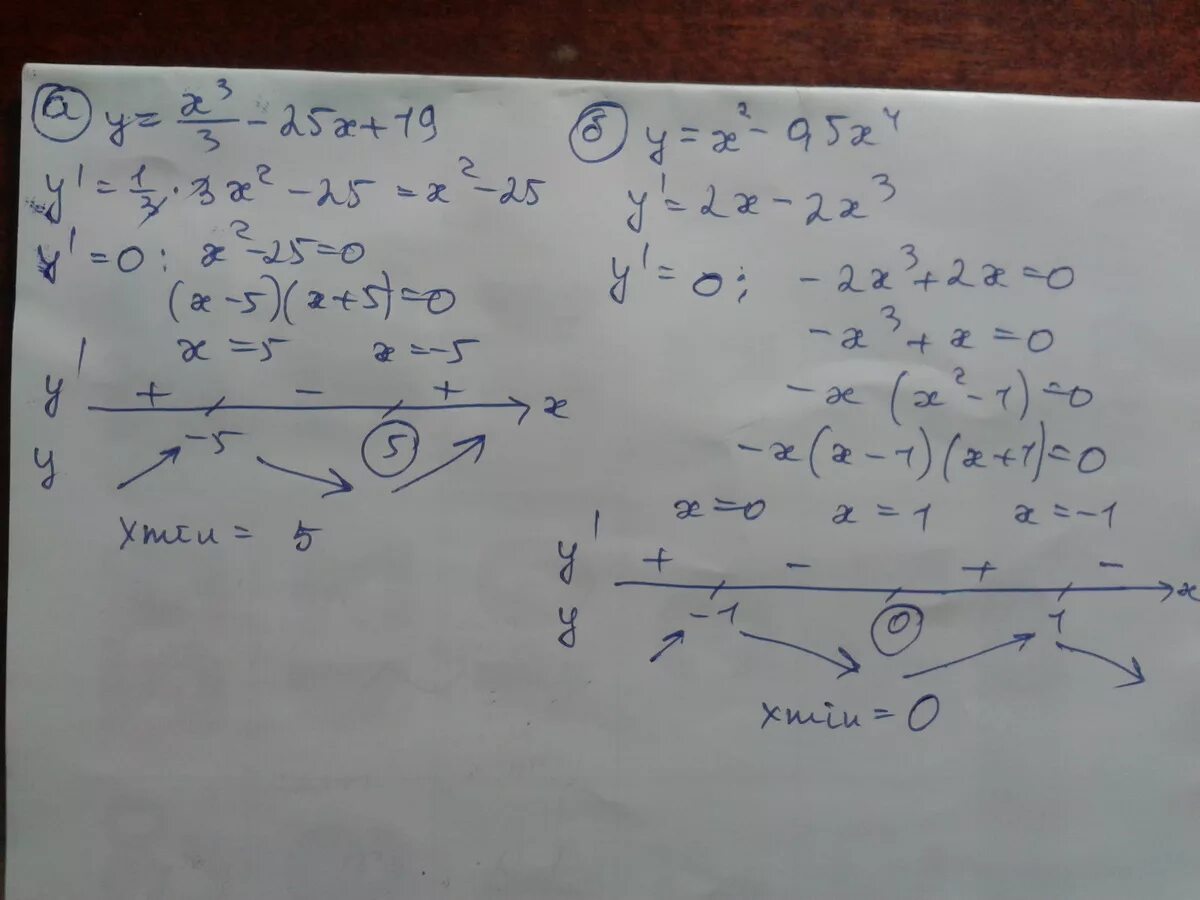 а) y = x³/3 - 25x + 19
y' = 1/3 · 3x² - 25 = x² - 25
y' = 0: x² - 25 = 0
(x - 5)(x + 5) = 0
x = 5 x = -5
y' + - + x
-5 5
y
xmin = 5
б) y = x² - 0,5x⁴
y' = 2x - 2x³
y' = 0; -2x³ + 2x = 0
-x³ + x = 0
-x (x² - 1) = 0
-x(x - 1)(x + 1) = 0
x = 0 x = 1 x = -1
y' + - + - x
y -1 0 1
xmin = 0